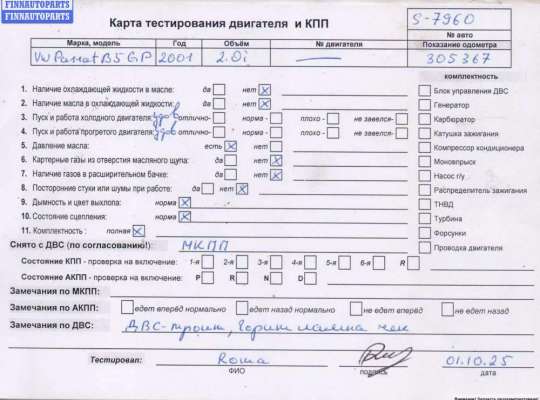 FINNAUTOPARTS
FINNAUTOPARTS
Карта тестирования двигателя и КПП
S-7960
№ авто
Марка, модель Год Объём № двигателя Показание одометра
VW Passat B5 GP 2001 2.0i 305367
комплектность
1. Наличие охлаждающей жидкости в масле: да нет X
2. Наличие масла в охлаждающей жидкости: да нет X
3. Пуск и работа холодного двигателя: удов отлично- норма - плохо - не завелся-
4. Пуск и работа прогретого двигателя: удов отлично- норма - плохо - не завелся-
5 Давление масла: есть X нет
6. Картерные газы из отверстия масляного щупа: да нет X
7. Наличие газов в расширительном бачке: да нет X
8. Посторонние стуки или шумы при работе: да нет X
9. Дымность и цвет выхлопа: норма X
10. Состояние сцепления: норма X
11. Комплектность : полная X
Блок управления ДВС
Генератор
Карбюратор
Катушка зажигания
Компрессор кондиционера
Моновпрыск
Насос г/у
Распределитель зажигания
ТНВД
Турбина
Форсунки
Проводка двигателя
Снято с ДВС (по согласованию!): МКПП
Состояние КПП - проверка на включение: 1-я 2-я 3-я 4-я 5-я 6-я R
Состояние АКПП - проверка на включение: P R N D
Замечания по МКПП:
Замечания по АКПП: едет вперёд нормально едет назад нормально не едет вперёд не едет назад
Замечания по ДВС: ДВС-троит, горит лампа чек
Тестировал: Roma 01.10.25
ФИО подпись дата